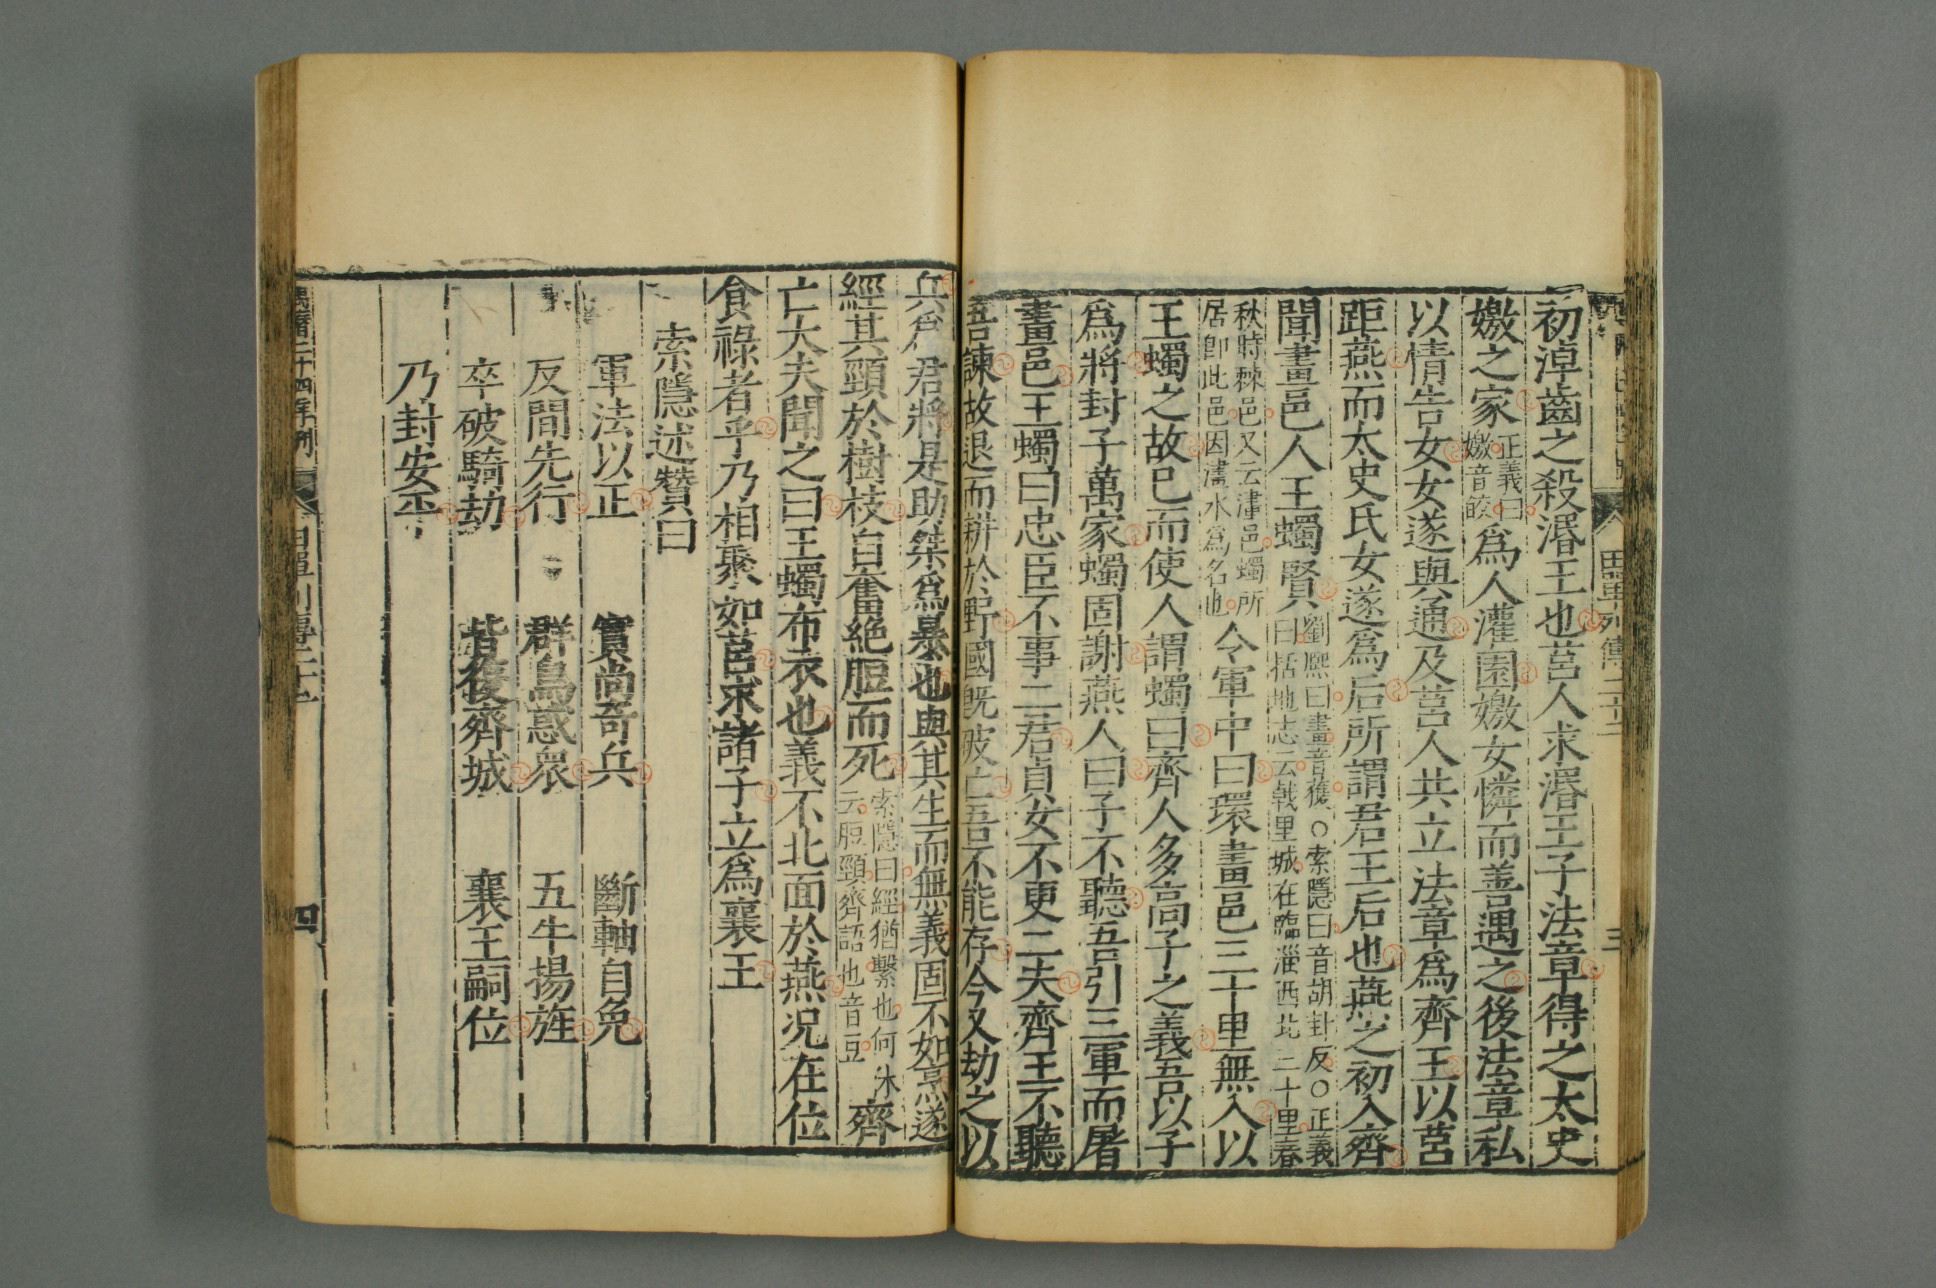 田單列傳二十二
三
初淖齒之殺湣王也莒人求湣王子法章得之太史
嬓之家正義曰嬓音皎爲人灌園嬓女憐而善遇之後法章私
以情告女女遂與通及莒人共立法章爲齊王以莒
距燕而太史氏女遂爲后所謂君王后也燕之初入齊
聞畫邑人王蠋賢劉熙曰畫音獲○索隱曰音胡卦反○正義曰括地志云戟里城在臨淄西北二十里春
秋時棘邑又云澅邑蠋所居卽此邑因澅水爲名也令軍中曰環畫邑三十里無入以
王蠋之故已而使人謂蠋曰齊人多高子之義吾以子
爲將封子萬家蠋固謝燕人曰子不聽吾引三軍而屠
畫邑王蠋曰忠臣不事二君貞女不更二夫齊王不聽
吾諫故退而耕於野國既破亡吾不能存今又劫之以
兵爲君將是助桀爲暴也與其生而無義固不如烹遂
經其頸於樹枝自奮絶脰而死索隱曰經猶繫也何休云脰頸齊語也音豆齊
亡大夫聞之曰王蠋布衣也義不北面於燕况在位
食祿者乎乃相聚如莒求諸子立爲襄王
索隱述贊曰
軍法以正 實尚奇兵 斷軸自免
反間先行 群鳥惑衆 五牛揚旌
卒破騎劫 皆復齊城 襄王嗣位
乃封安平
萬曆二十四年刊
田單列傳二十二
四